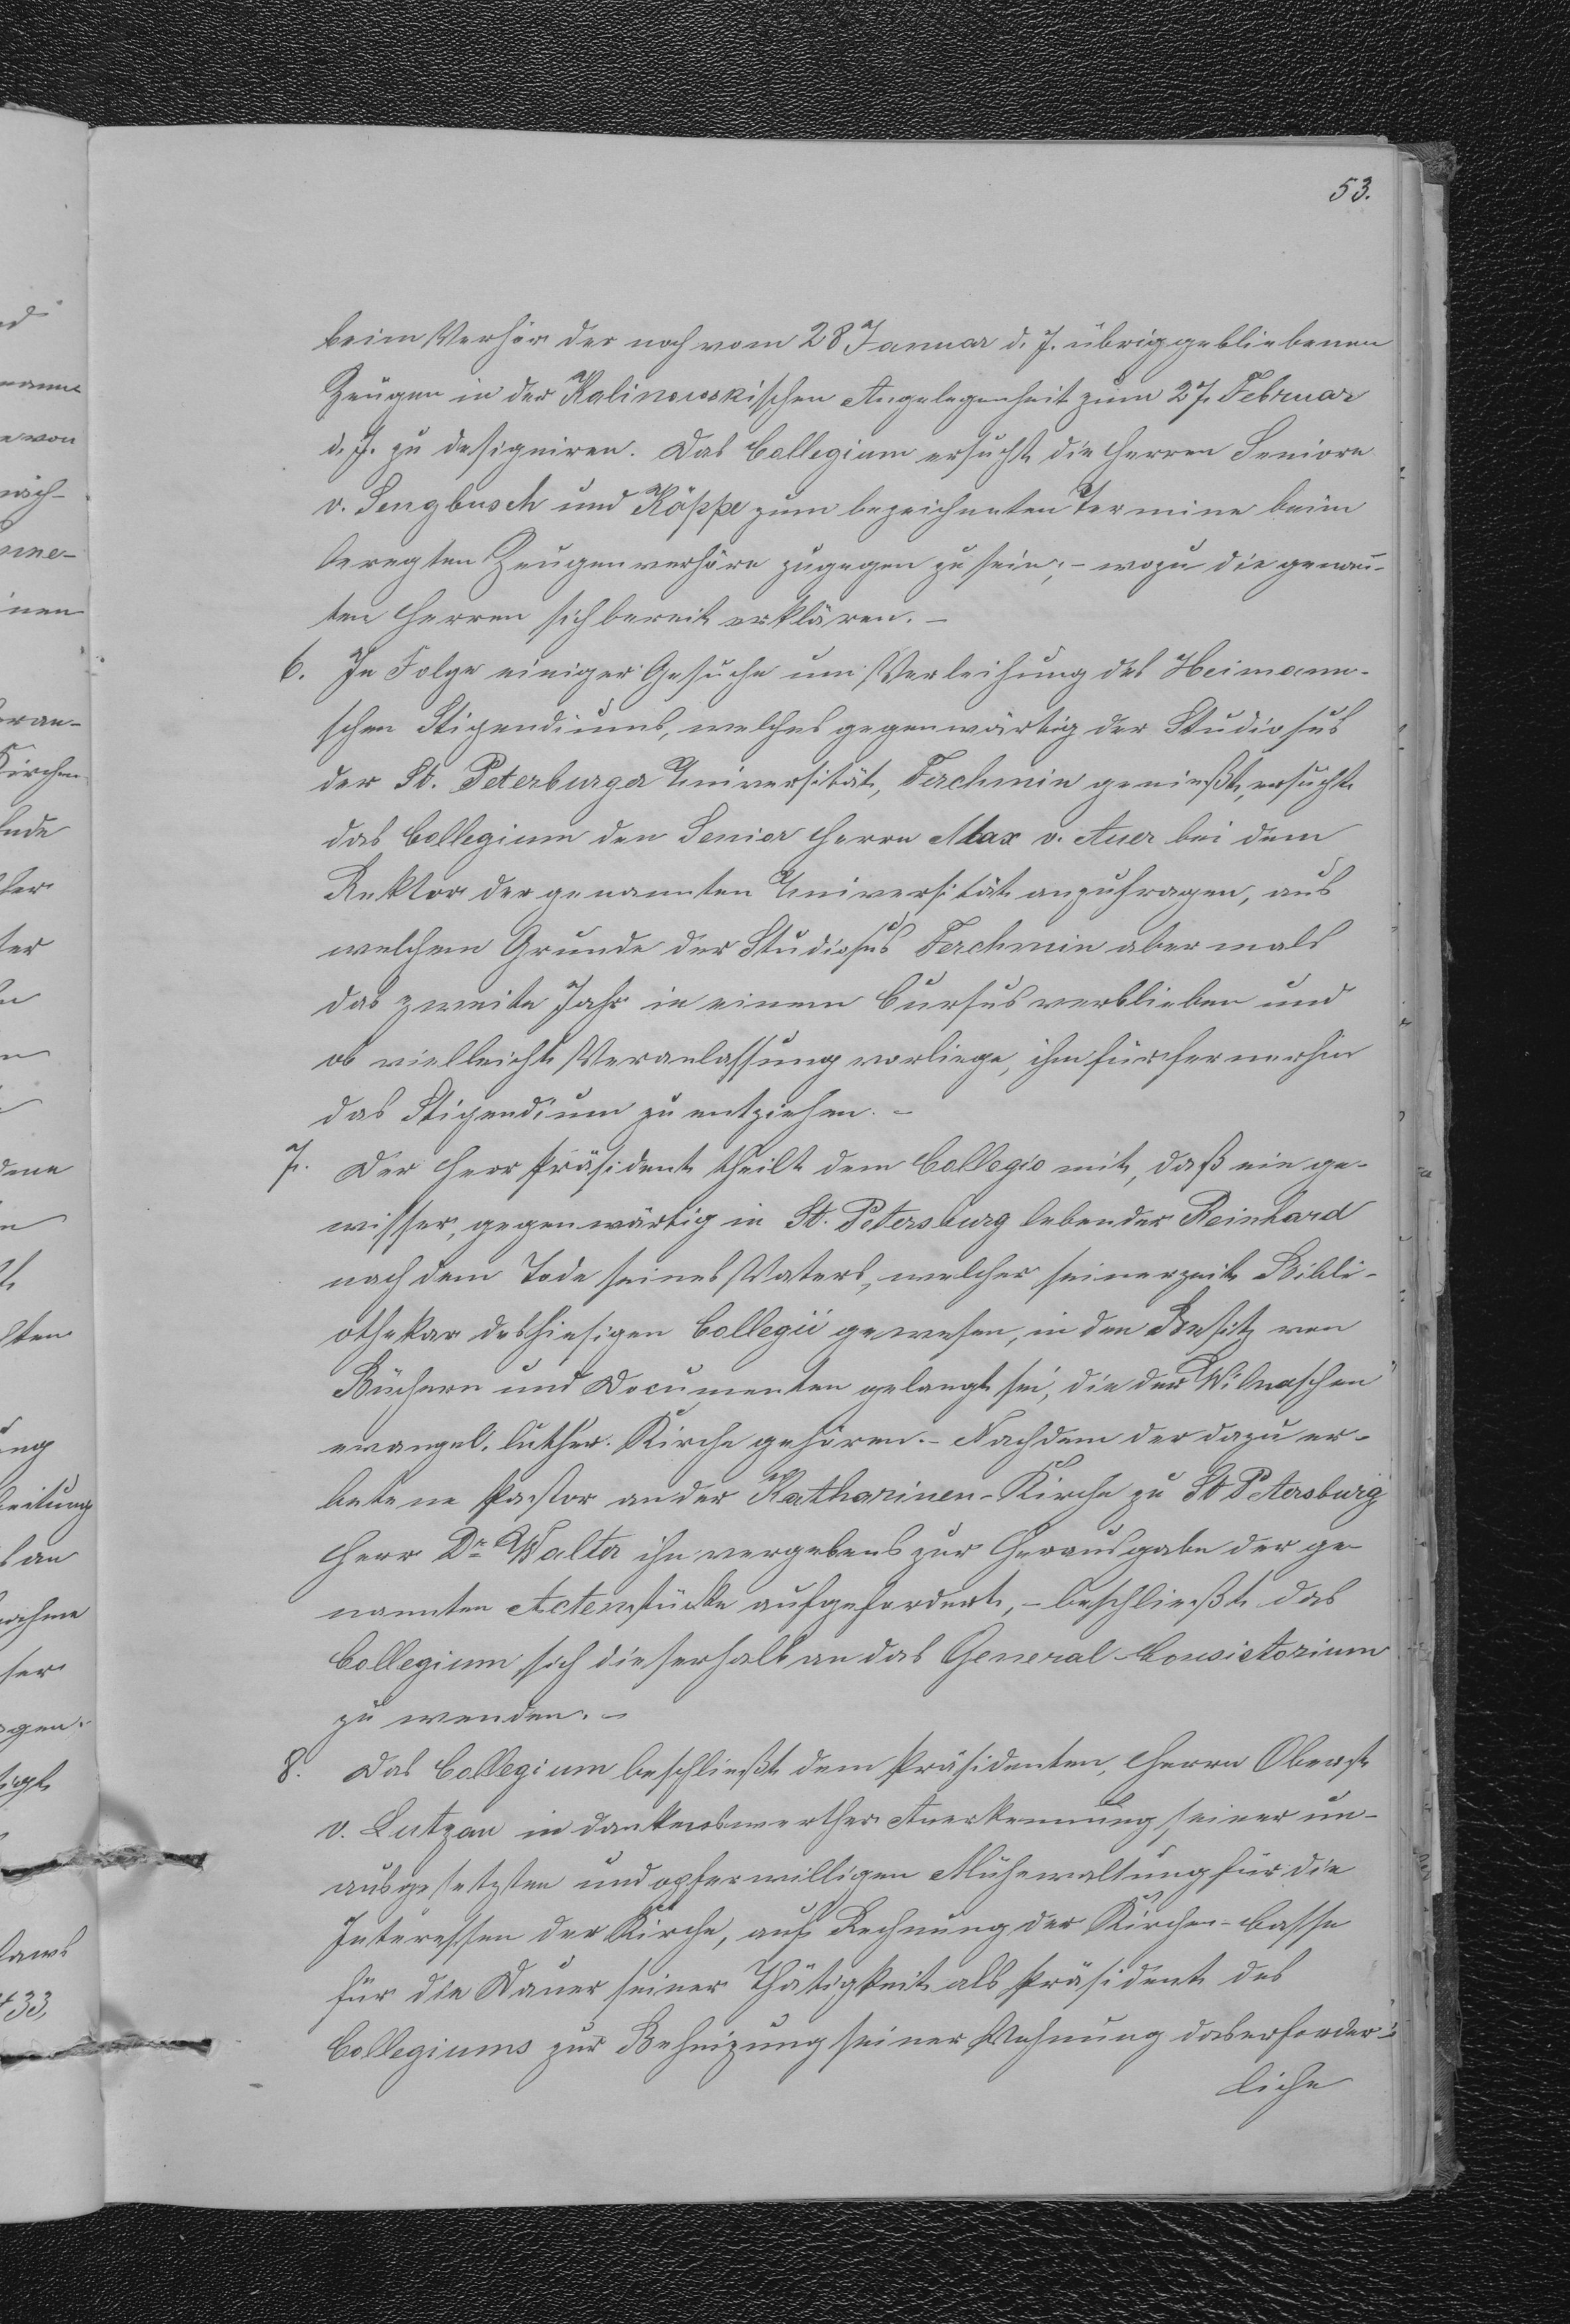 53.
beim Verhör der noch vom 28 Januar d. J. übriggebliebenen
Zeugen in der Kalinowskischen Angelegenheit zum 27. Februar
d. J. zu designiren. Das Collegium ersucht die Herren Seniore
v. Sengbusch und Köppe zum bezeichneten Termine beim
beregten Zeugenverhöre zugegen zu sein; – wozu die genan-
ten Herren sich bereit erklären. –
6. In Folge einiger Gesuche um Verleihung des Heimann-
schen Stipendiums, welches gegenwärtig der Studiosus
der St. Peterburger Universität, Ferchmin genießt, ersucht
das Collegium den Senior Herrn Max v. Auer bei dem
Rektor der genannten Universität anzufragen, aus
welchem Grunde der Studiosus Ferchmin abermals
das zweite Jahr in einem Cursus verblieben und
ob vielleicht Veranlassung vorliege, ihm für fernerhin
das Stipendium zu entziehen. –
7. Der Herr Präsident theilt dem Collegio mit, daß ein ge-
wisser, gegenwärtig in St. Petersburg lebender Reinhard
nach dem Tode seines Vaters, welcher seinerzeit Bibli-
othekar des hiesigen Collegii gewesen, in den Besitz von
Büchern und Documenten gelangt sei, die der Wilnaschen
evangel. luther. Kirche gehören. – Nachdem der dazu er-
betene Pastor an der Katharinen-Kirche zu St Petersburg
Herr Dr Walter ihn vergebens zur Herausgabe der ge-
nannten Actenstücke aufgefordert, – beschließt das
Collegium, sich dieserhalb an das General-Consistorium
zu wenden. –
8. Das Collegium beschließt dem Präsidenten, Herrn Oberst
v. Lutzau in dankenswerther Anerkennung seiner un-
ausgesetzten und opferwilligen Mühewaltung für die
Interessen der Kirche, auf Rechnung der Kirchen-Casse
für die Dauer seiner Thätigkeit als Präsident des
Collegiums zur Beheizung seiner Wohnung das erforder-
liche